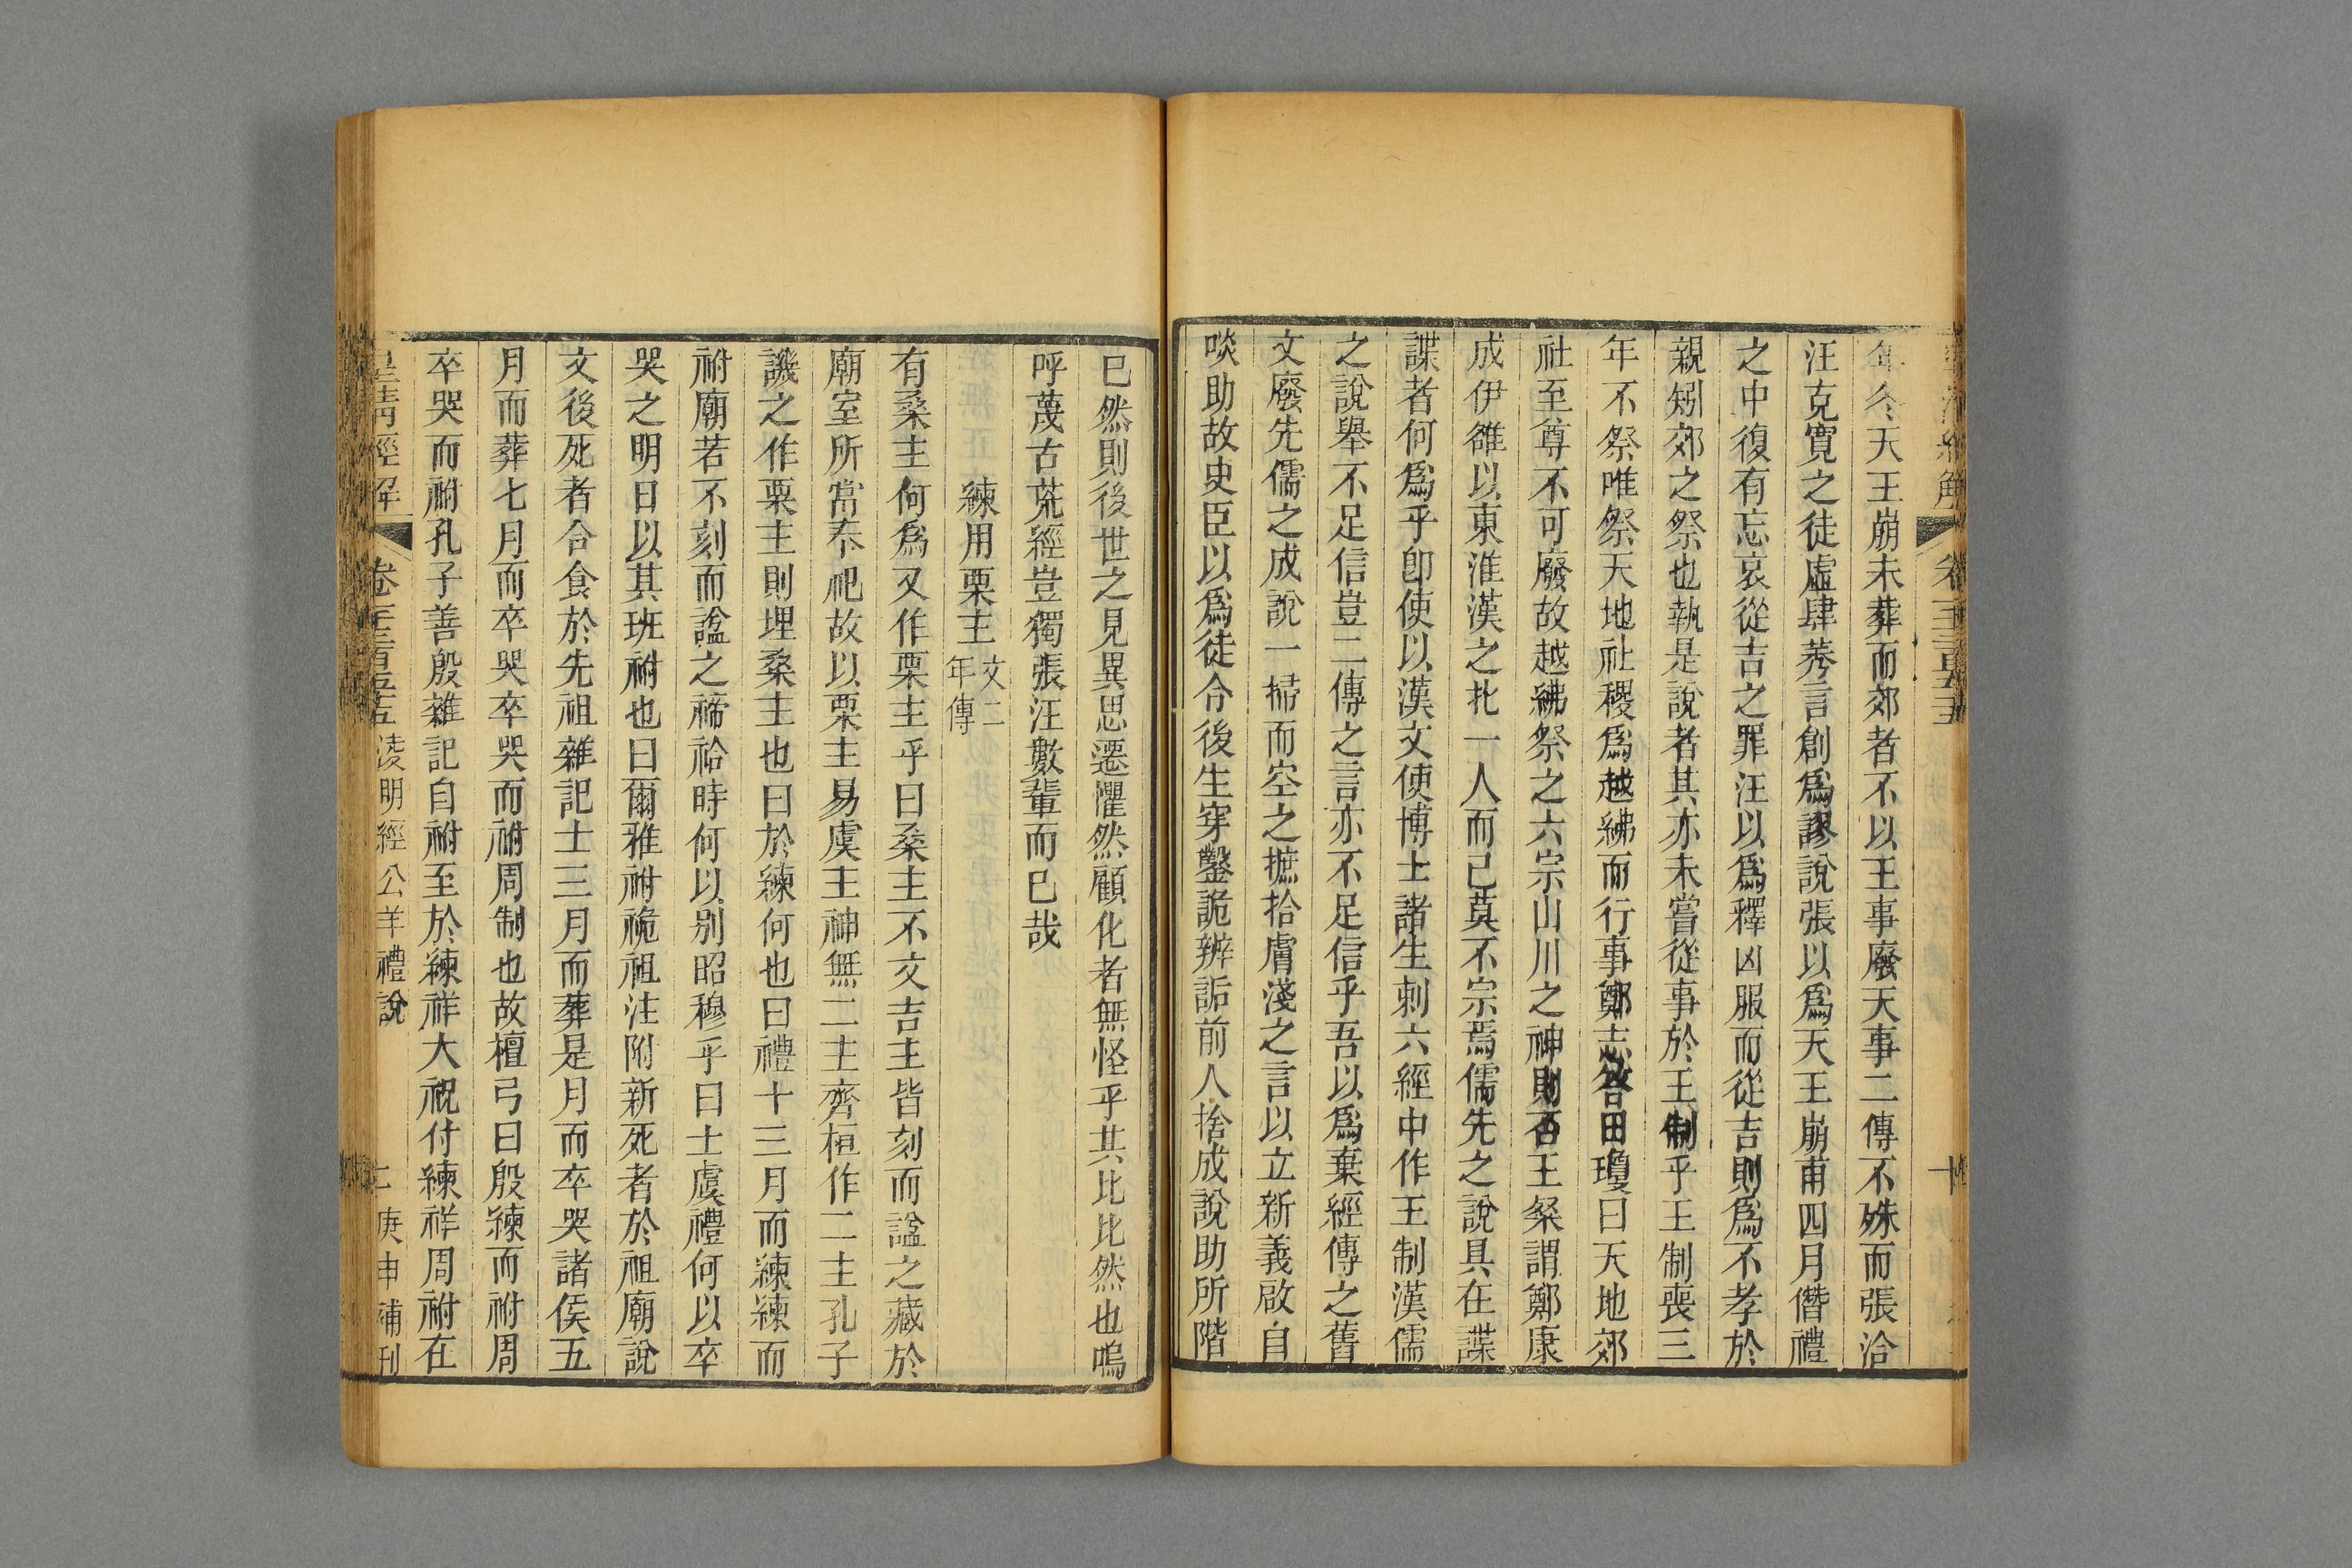 年冬天王崩未葬而郊者不以王事廢天事二傳不殊而張洽
汪克寬之徒虛肆莠言創爲謬說張以爲天王崩甫四月僭禮
之中復有忘哀從吉之罪汪以爲釋凶服而從吉則爲不孝於
親矧郊之祭也執是說者其亦未嘗從事於王制乎王制喪三
年不祭唯祭天地社稷爲越紼而行事鄭志答田瓊曰天地郊
社至尊不可廢故越紼祭之六宗山川之神則否王粲謂鄭康
成伊雒以東淮漢之北一人而已莫不宗焉儒先之說具在諜
諜者何爲乎卽使以漢文使博士諸生刺六經中作王制漢儒
之說舉不足信豈二傳之言亦不足信乎吾以爲棄經傳之舊
文廢先儒之成說一掃而空之摭拾膚淺之言以立新義啟自
啖助故史臣以爲徒令後生穿鑿詭辨詬前人捨成說助所階
已然則後世之見異思遷懼然顧化者無怪乎其比比然也嗚
呼蔑古荒經豈獨張汪數輩而已哉
練用栗主 文二年傳
有桑主何爲又作栗主乎曰桑主不文吉主皆刻而諡之藏於
廟室所當奉祀故以栗主易虞主神無二主齊桓作二主孔子
譏之作栗主則埋桑主也曰於練何也曰禮十三月而練練而
祔廟若不刻而諡之禘祫時何以别昭穆乎曰士虞禮何以卒
哭之明日以其班祔也曰爾雅祔祪祖注附新死者於祖廟說
文後死者合食於先祖雜記士三月而葬是月而卒哭諸侯五
月而葬七月而卒哭卒哭而祔周制也故檀弓曰殷練而祔周
卒哭而祔孔子善殷雜記自祔至於練祥大祝付練祥周祔在
皇清經解 卷一千三百五十五 凌明經公羊禮說 十一 庚申補刊